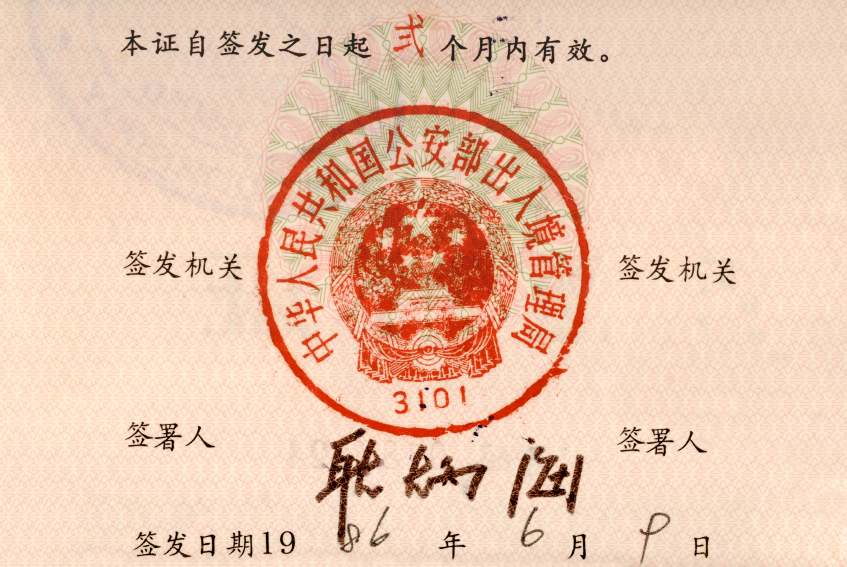 本证自签发之日起 弍 个月内有效。
中华人民共和国公安部出入境管理局
签发机关 签发机关
3101
签署人 签署人
签发日期19 86 年 6 月 9 日